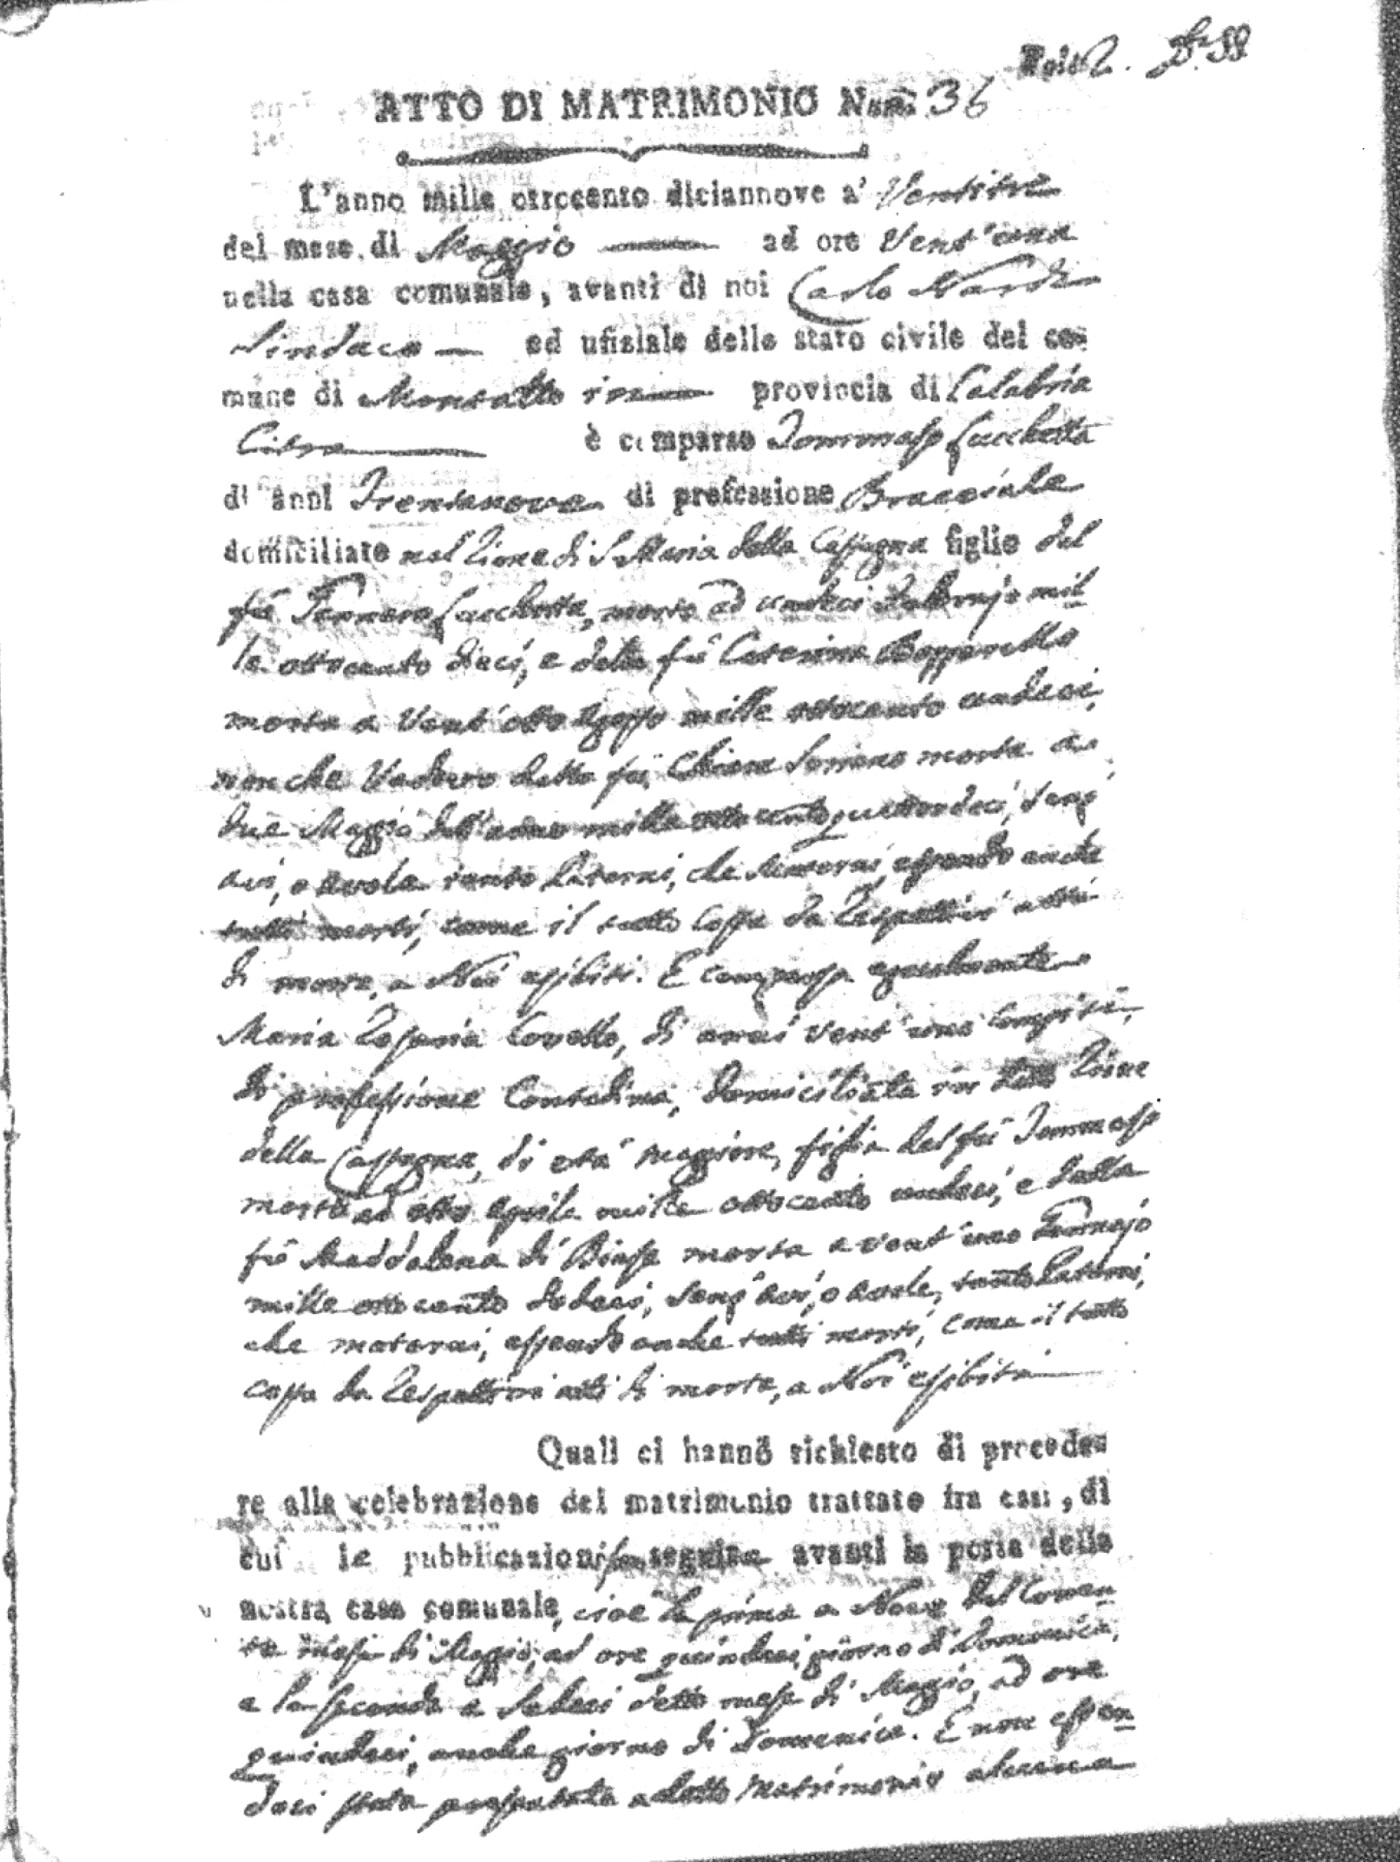 ATTO DI MATRIMONIO Num. 36
L'anno mille ottocento diciannove a' Ventitre
del mese di Maggio ad ore Vent'una
nella casa comunale, avanti di noi Carlo Nardi
Sindaco ed ufiziale dello stato civile del co-
mune di Montalto in provincia di Calabria
Citra è comparso Tommaso Lucchetta
di anni Trentanove di professione Bracciale
domiciliato nel Rione di S. Maria della Cassagna figlio del
fù Gennaro Lucchetta, morto ad undeci mil-
le ottocento dieci, e della fù Caterina
morta a Vent'otto Agosto mille ottocento undeci,
nonche Vedovo della fù Chiara Sorrano morta a
due Maggio dell'anno mille ottocento quattordeci, senz'
avi, o avole tanto Paterni, che Materni, essendo anche
tutti morti, come il tutto costa da Respettivi atti
di morte, a Noi esibiti. E comparsa egualmente
Maria Rosaria Covello, di anni vent'uno compiti,
di professione Contadina, domiciliata in detto Rione
della Cassagna, di età maggiore, figlia del fù Tommaso
morto ad otto Aprile mille ottocento undeci, e della
fù Maddalena di Biase morta a vent'uno Gennajo
mille ottocento dodeci, senz'avi, o avole, tanto Paterni,
che materni, essendo anche tutti morti, come il tutto
costa da Respettivi atti di morte, a Noi esibiti
Quali ci hanno richiesto di procede-
re alla celebrazione del matrimonio trattato fra essi, di
cui le pubblicazioni son seguite avanti la porta della
nostra casa comunale, cioè la prima a Nove del Corren-
te mese di Maggio, ad ore quindeci, giorno di Domenica,
e la seconda a Sedeci detto mese di Maggio, ad ore
quindeci, anche giorno di Domenica. E non essen-
doci stata presentata a detto Matrimonio alcuna